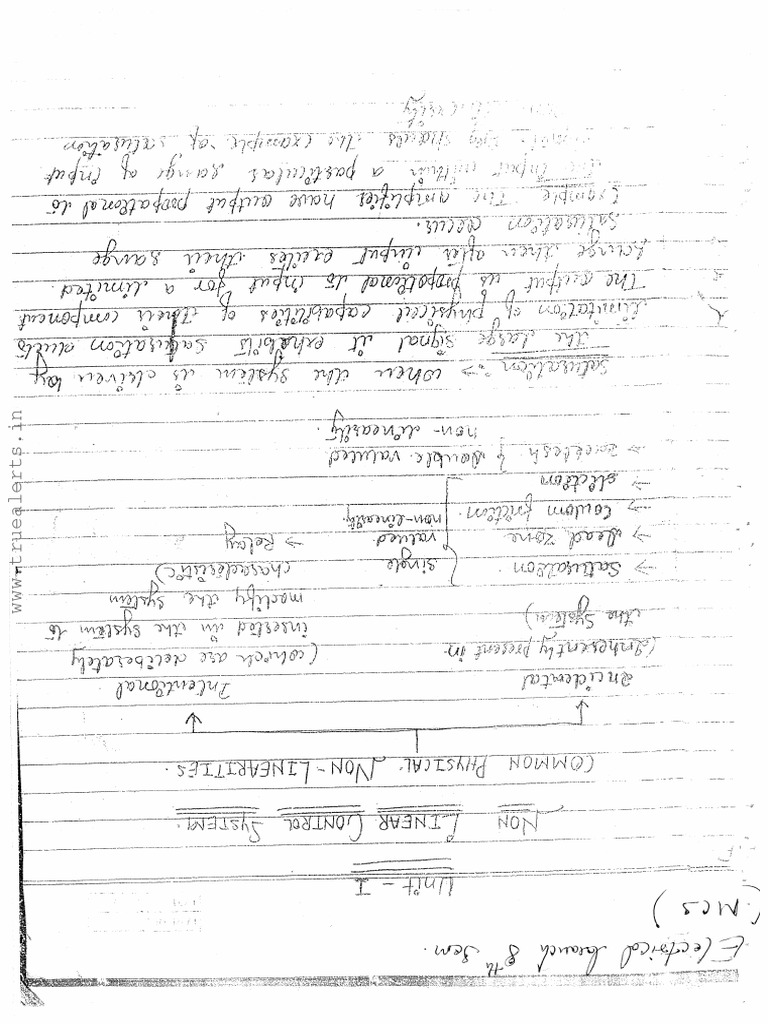 Electrical branch 8th Sem.
(NCS)
Unit - I
NON LINEAR CONTROL SYSTEM.
COMMON PHYSICAL NON-LINEARITIES.
Incidental
(Inherently present in
the System)
→ Saturation
→ Dead zone
→ Coulom friction.
→ stiction
single
valued
non-linearity
→ backlesh } Double valued
non-linearity.
Intentional
(which are deliberately
inserted in the system to
modify the system
characteristic)
→ Relay
Saturation :→ when the system is driven by
the large signal it exhibits saturation due to
limitation of physical capabilities of their component
The output is propotional to input for a limited
range then after input exites their range
saturation occur.
Example The amplifier have output propotional to
the input within a particular range of input
the example of saturation
www.truealerts.in